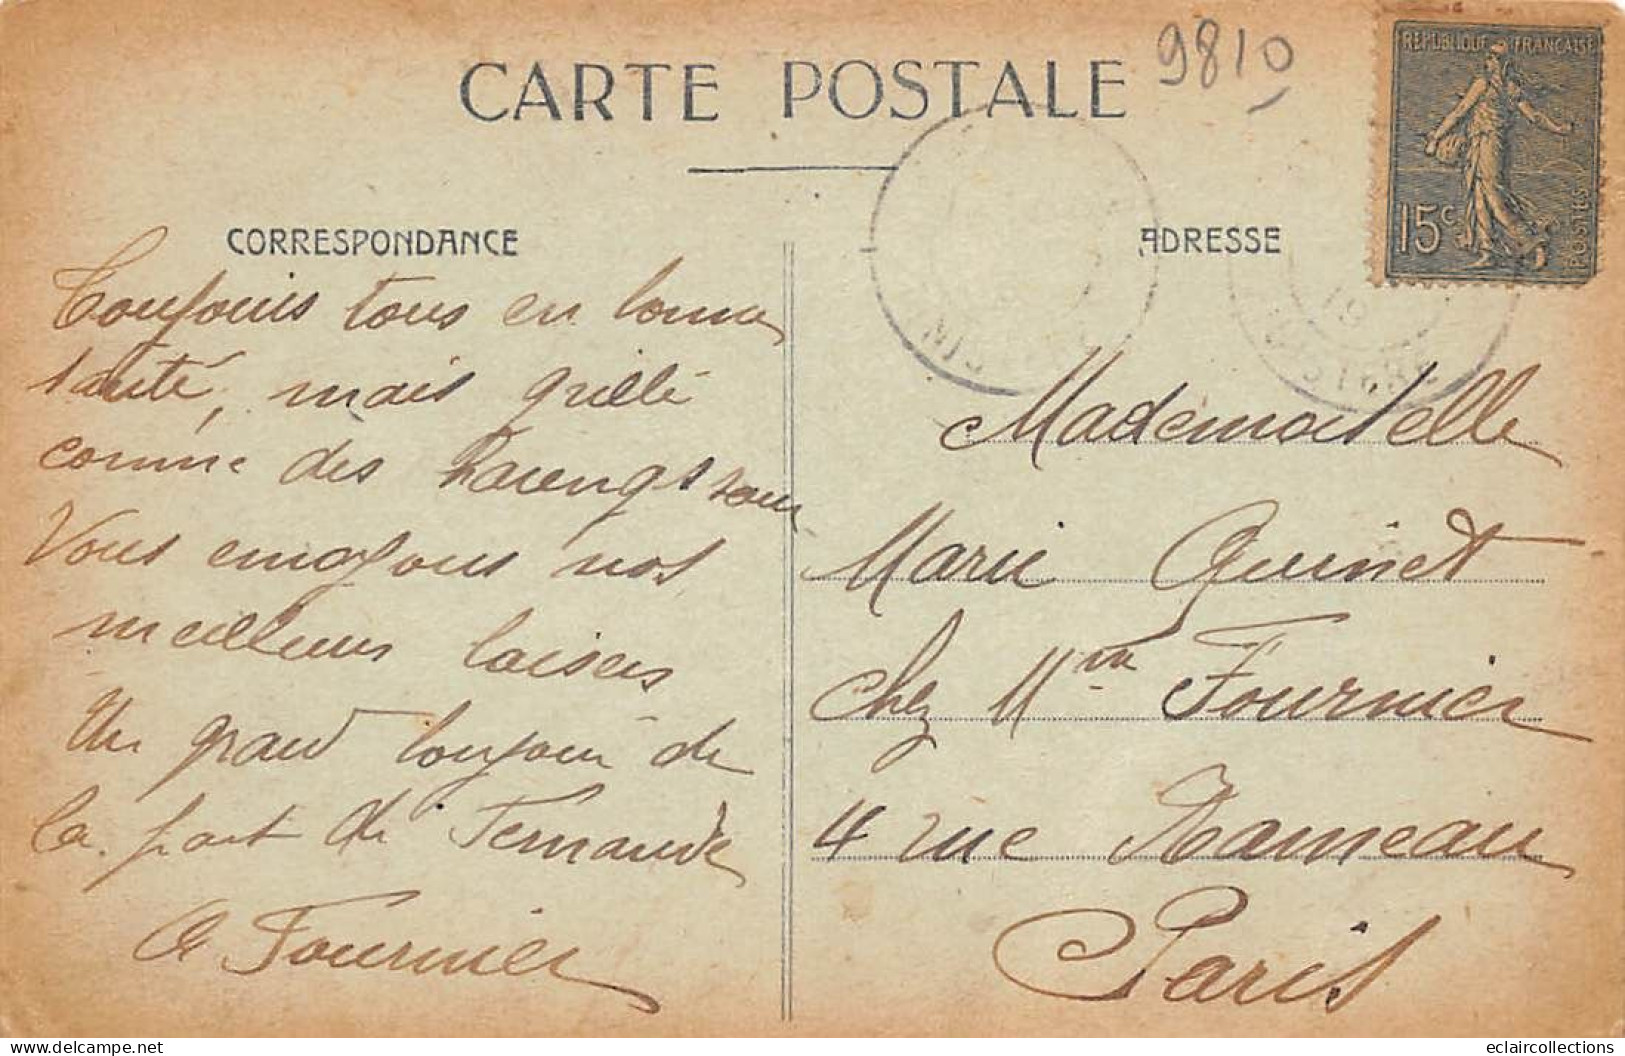 CARTE POSTALE
9810
REPUBLIQUE FRANCAISE
15c
POSTES
CORRESPONDANCE
ADRESSE
NIS
19
FINISTERE
Toujours tous en bonne
santé, mais grillé
comme des harengs nous
Vous envoyons nos
meilleurs baisers
Un grand bonjour de
la part de Fernande
A Fournier
Mademoiselle
Marie Quinet
chez Mme Fournier
4 rue Rameau
Paris
delcampe.net
eclaircollections